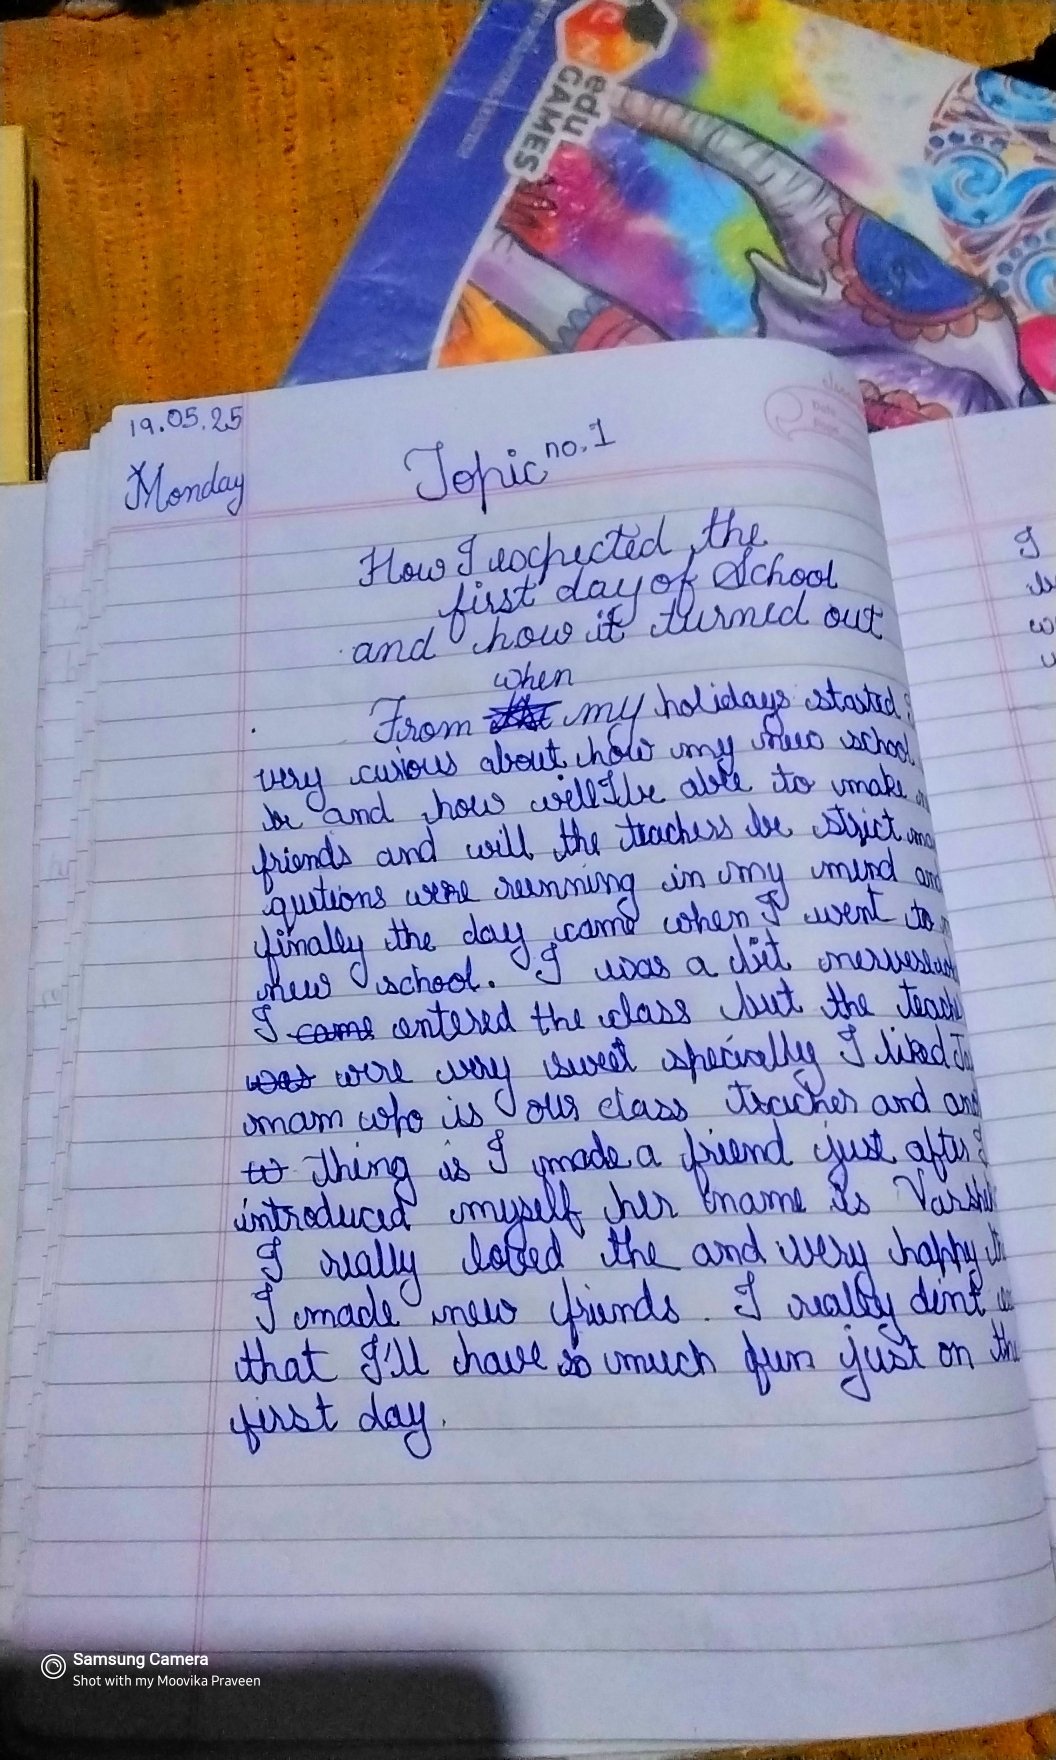 edu
GAMES
19.05.25
Monday
Topic no. 1
How I expected the
first day of School
and how it turned out
when
From my holidays started
very curious about how my new school
be and how will I be able to make
friends and will the teachers be strict
qutions were running in my mind and
finally the day came when I went to
new school. I was a bit nerves
I came entered the class but the teach
was were very sweet specially I liked
mam who is our class teacher and
to thing is I made a friend just after I
introduced myself her name is Varsh
I really loved the and very happy
I made new friends. I really dint
that I'll have so much fun just on the
first day.
I
Samsung Camera
Shot with my Moovika Praveen